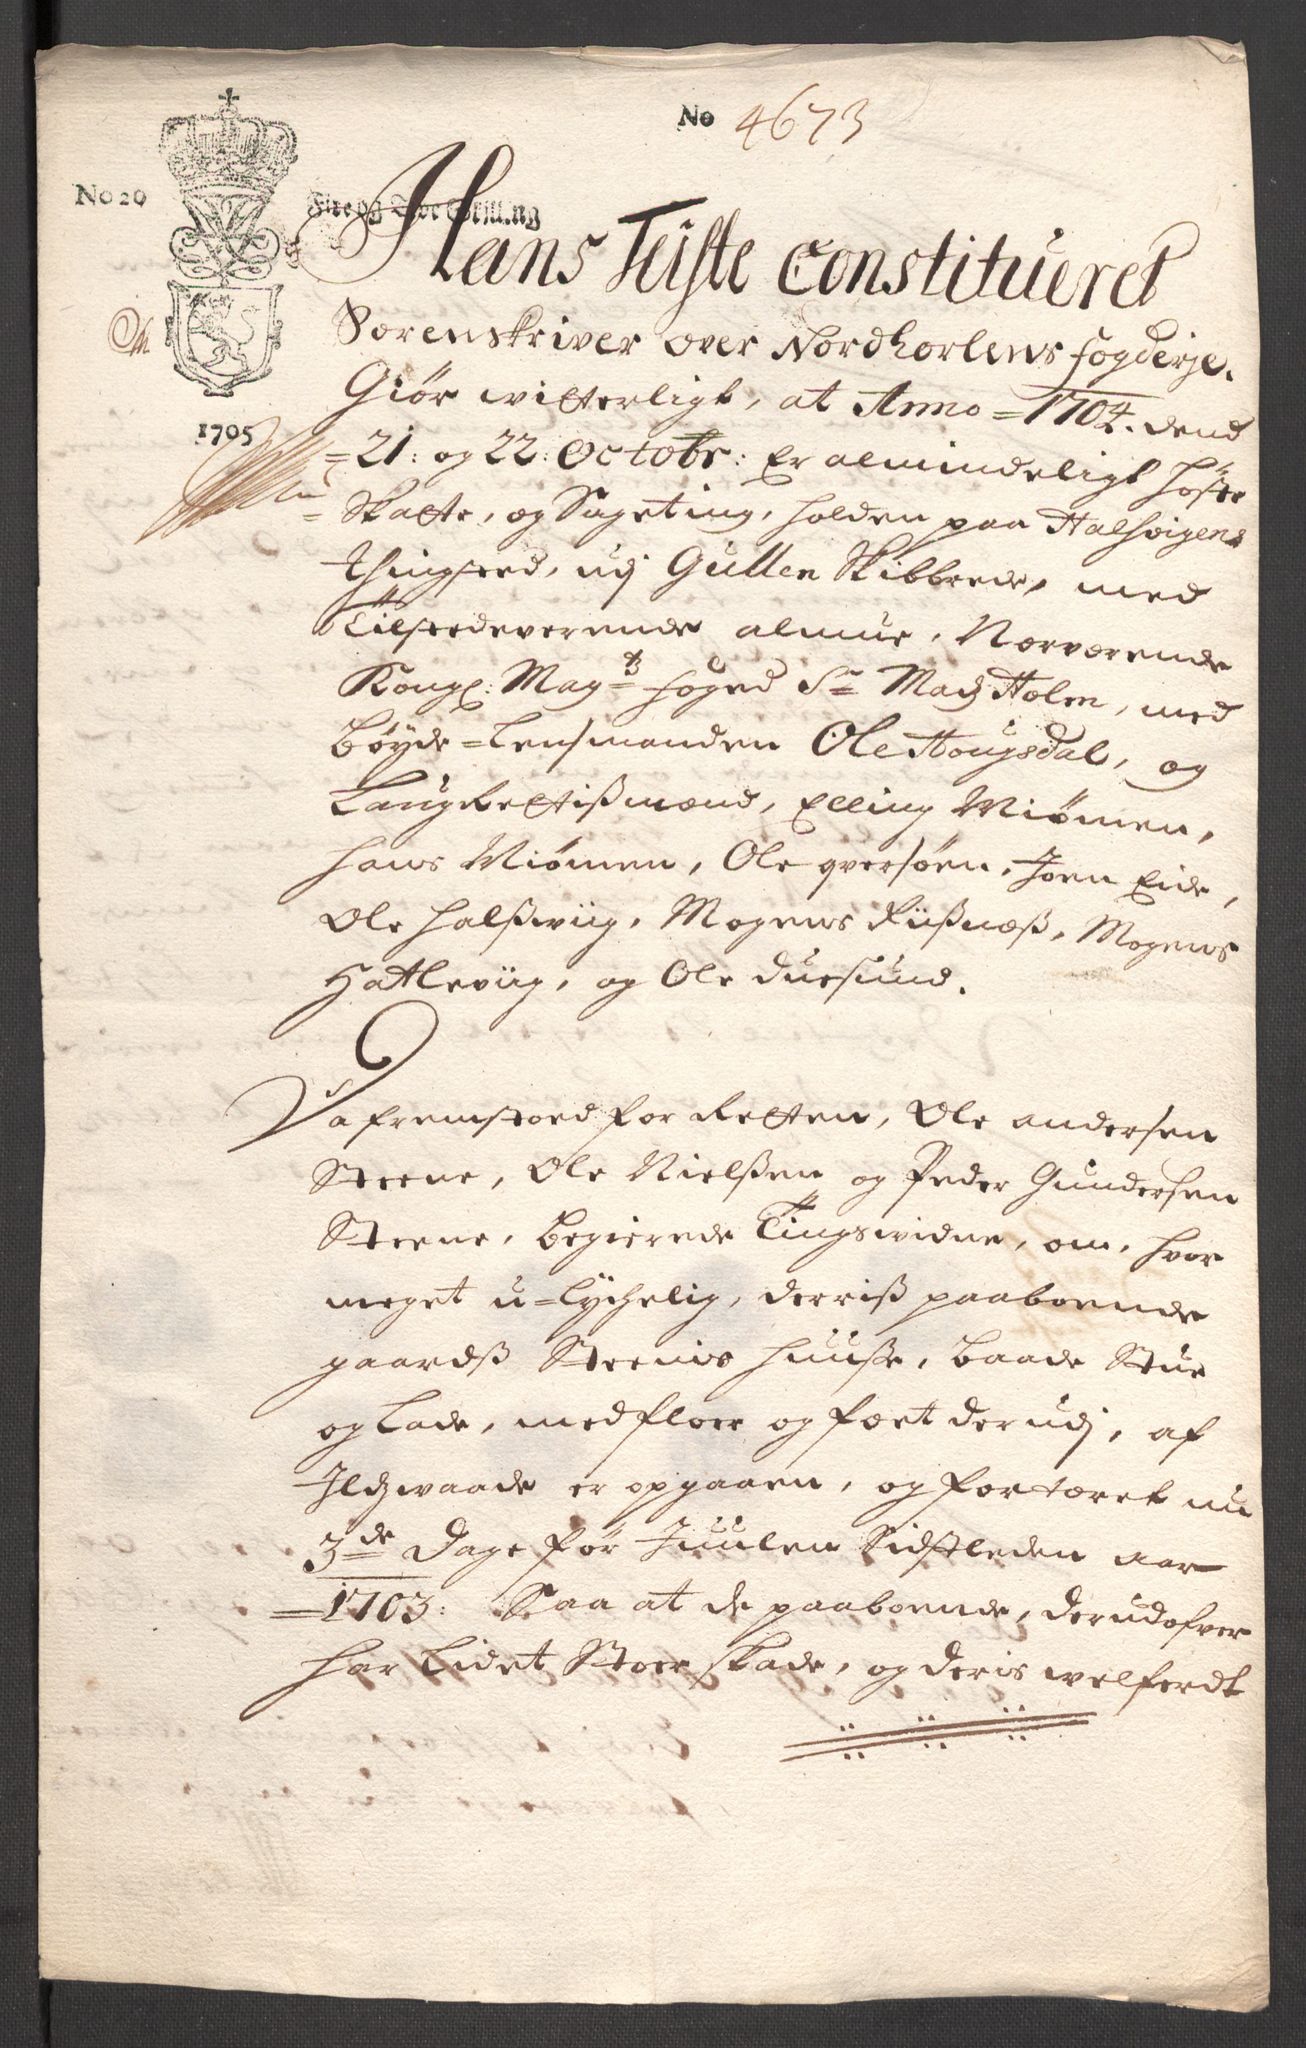 No 4673
No 20
Fire og Tive Skilling
1705
Hans Teiste Constitueret
Sorenskriver over Nordhorlens fogderje.
Giör witterligt, at Anno =1704. dend
=21: og 22: Octobr: Er almindeligt Höste
=Skatte, og Sageting, holden paa Halsvigens
thingsted, udj Gullen Skibbrede, med
Tilstedeverende almue, Nerverende
Kongl: Mayts foged Sr Madz Holm, med
bøyde=Lensmanden Ole Hougsdal, og
LaugRettißmænd, Elling Miömen,
hans Miömen, Ole qversöen, Joen Eide,
Ole halßwiig, Mogens Riißnæß, Mogens
Hatleviig, og Ole Duesund.
Da fremstoed for Retten, Ole andersen
Steene, Ole Nielßen og Peder Gundersen
Steene, begierede Tingswidne, om, hvor
meget u=lychelig, derriß paaboende
gaardß Steenis huuße, baade Stue
og Lade, med floer og foet derudj, af
Ildzwaade er opgaaen, og fortæret nu
3de Dage før Juulen Sidstleden aar
=1703: Saa at de paaboende, derudofver
har Lidet Stoer skade, og deris welferdt